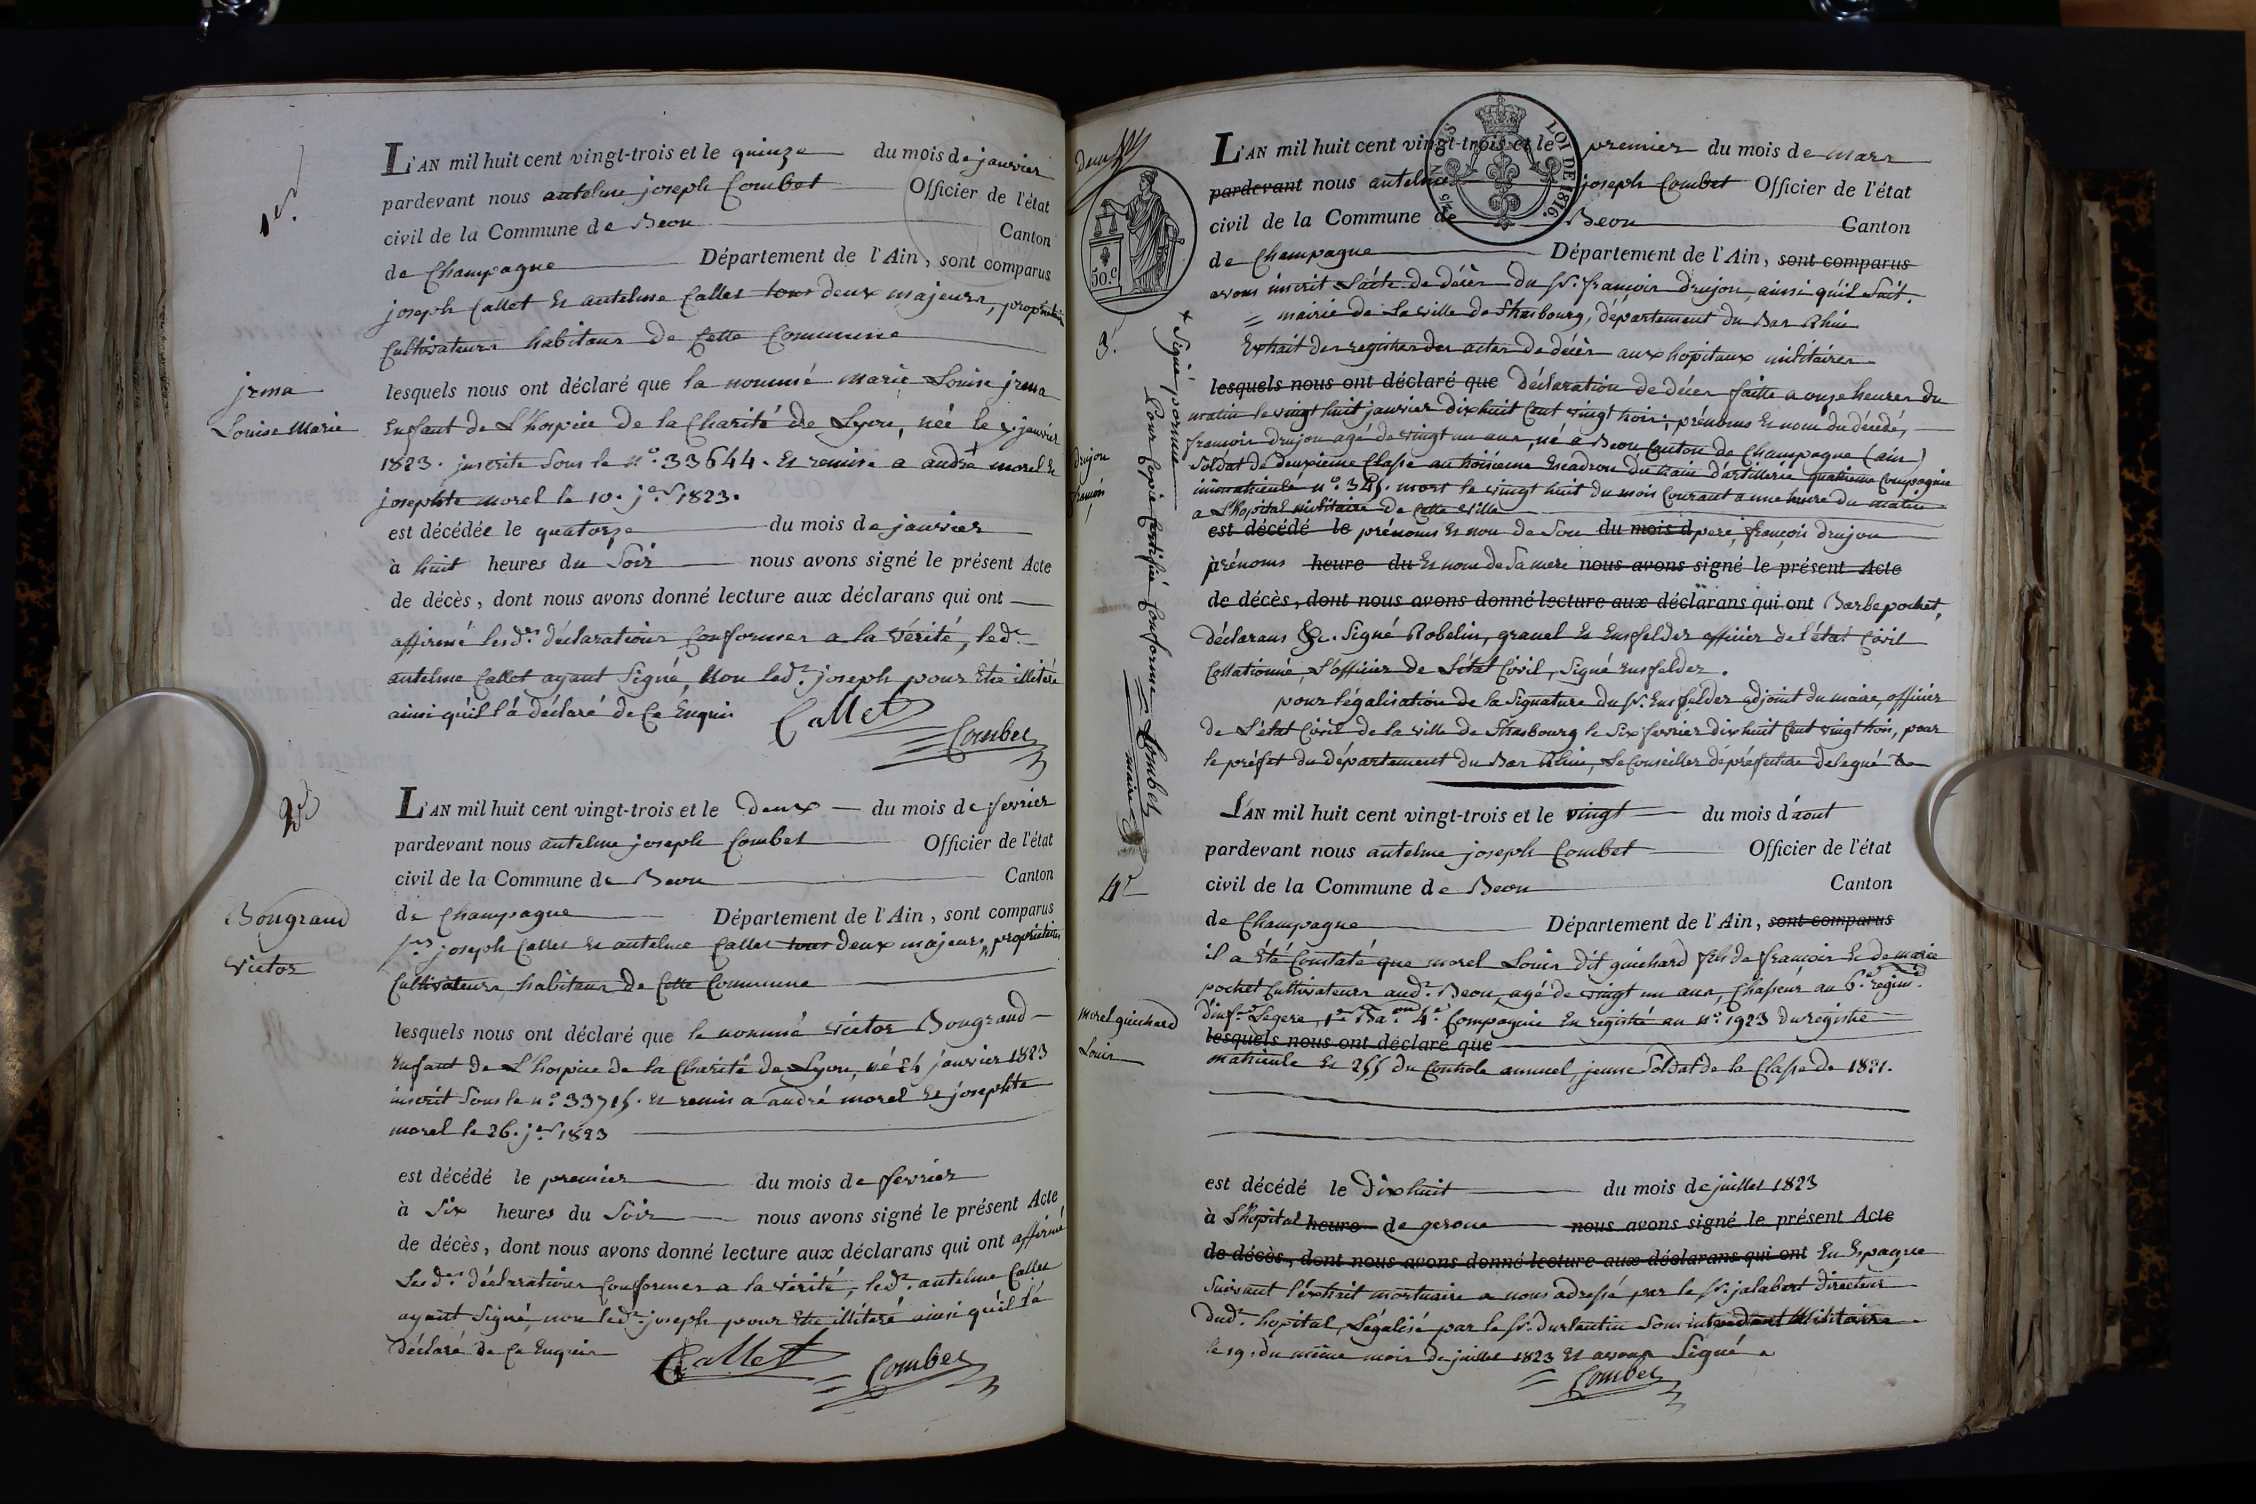 1er.
L'AN mil huit cent vingt-trois et le quinze du mois de janvier
pardevant nous antelme joseph Combet Officier de l'état
civil de la Commune de Beon Canton
de Champagne Département de l'Ain, sont comparus
joseph Callet et antelme Callet tous deux majeurs, propriétaires
Cultivateurs habitans de Cette Commune
jrma
Louise Marie
lesquels nous ont déclaré que la nommé marie Louise jrma
Enfant de L'hospice de la Charité de Lyon, née le janvier
1823. inscrite Sous le n.° 33644. Et remise a andré morel Et
josephte morel le 10. j.er 1823.
est décédée le quatorze du mois de janvier
à huit heures du Soir nous avons signé le présent Acte
de décès, dont nous avons donné lecture aux déclarans qui ont
affirmé lesd.es déclarations Conformes a la Vérité, led.
antelme Callet ayant Signé, Non led. joseph pour Etre illitéré
ainsi qu'il l'a déclaré de Ce Enquis
Callet
Combet
2e
L'AN mil huit cent vingt-trois et le deux du mois de fevrier
pardevant nous antelme joseph Combet Officier de l'état
civil de la Commune de Beon Canton
Bougrand
victor
de Champagne Département de l'Ain, sont comparus
joseph Callet et antelme Callet tous deux majeurs, propriétaires
Cultivateurs, habitans de Cette Commune
lesquels nous ont déclaré que le nommé victor Bougrand
Enfant de L'hospice de la Charité de Lyon, né janvier 1823
inscrit Sous le n.° 33715. et remis a andré morel Et josephte
morel le 26. j.er 1823
est décédé le premier du mois de fevrier
à Six heures du Soir nous avons signé le présent Acte
de décès, dont nous avons donné lecture aux déclarans qui ont affirmé
Lesd.es déclarations Conformes a la Vérité, led. antelme Callet
ayant Signé, non led. joseph pour Etre illitéré ainsi qu'il l'a
déclaré de Ce Enquis
Callet
Combet
LOI DE 1816.
50.c
3.
L'AN mil huit cent vingt-trois et le premier du mois de mars
pardevant nous antelme joseph Combet Officier de l'état
civil de la Commune de Beon Canton
de Champagne Département de l'Ain, sont comparus
avons inscrit L'acte de décès du Sr. françois drujon, ainsi qu'il Suit.
= mairie de La ville de Strasbourg, département du Bas Rhin
Extrait des registres des actes de décès aux hopitaux militaires
lesquels nous ont déclaré que déclaration de décès faitte a onze heures du
matin le vingt huit janvier dix huit Cent vingt trois; prénoms Et nom du décédé,
drujon
françois
françois drujon agé de vingt un ans, né a Beon Canton de Champagne (ain)
Soldat de deuxieme Classe au troisieme Escadron du train d'artillerie quatrieme Compagnie
immatriculé n.° 345. mort le vingt huit du mois Courant a une heure du matin
a L'hopital militaire de Cette ville
est décédé le prénoms Et nom de Son du mois d pere, françois drujon
à prénoms heure du Et nom de Sa mere nous avons signé le présent Acte
de décès, dont nous avons donné lecture aux déclarans qui ont Barbe pochet,
déclarans &c. Signé Robelin, gravel Et Ensfelder officier de l'état Civil
Collationné, L'officier de L'état Civil, Signé Ensfelder.
pour légalisation de la Signature du Sr. Ensfelder adjoint du maire, officier
de L'état Civil de la ville de Strasbourg le Six fevrier dix huit Cent vingt trois, pour
le préfet du département du Bas Rhin, Le Conseiller de préfecture delegué
+ Signé
Pour Copie Certifié Conforme Combet
maire
4e
L'AN mil huit cent vingt-trois et le vingt du mois d'aout
pardevant nous antelme joseph Combet Officier de l'état
civil de la Commune de Beon Canton
de Champagne Département de l'Ain, sont comparus
il a Eté Constaté que morel Louis dit guichard fils de françois Et de marie
pochet Cultivateurs aud. Beon, agé de vingt un ans, Chasseur au 6.e regim.
morel guichard
Louis
d'inf.ie Legere, 1er Ba.on 4.e Compagnie En registré au n.° 1923 du registre
lesquels nous ont déclaré que
matricule Et 255 du Controle annuel, jeune Soldat de la Classe de 1821.
est décédé le dix huit du mois de juillet 1823
à L'hopital heure de gerone nous avons signé le présent Acte
de décès, dont nous avons donné lecture aux déclarans qui ont En Espagne
Suivant l'extrait mortuaire a nous adressé par le Sr. jalabert directeur
dud. hopital, Légalisé par le Sr. Sous intendant Militaire
le 19. du même mois de juillet 1823 Et avons Signé
Combet